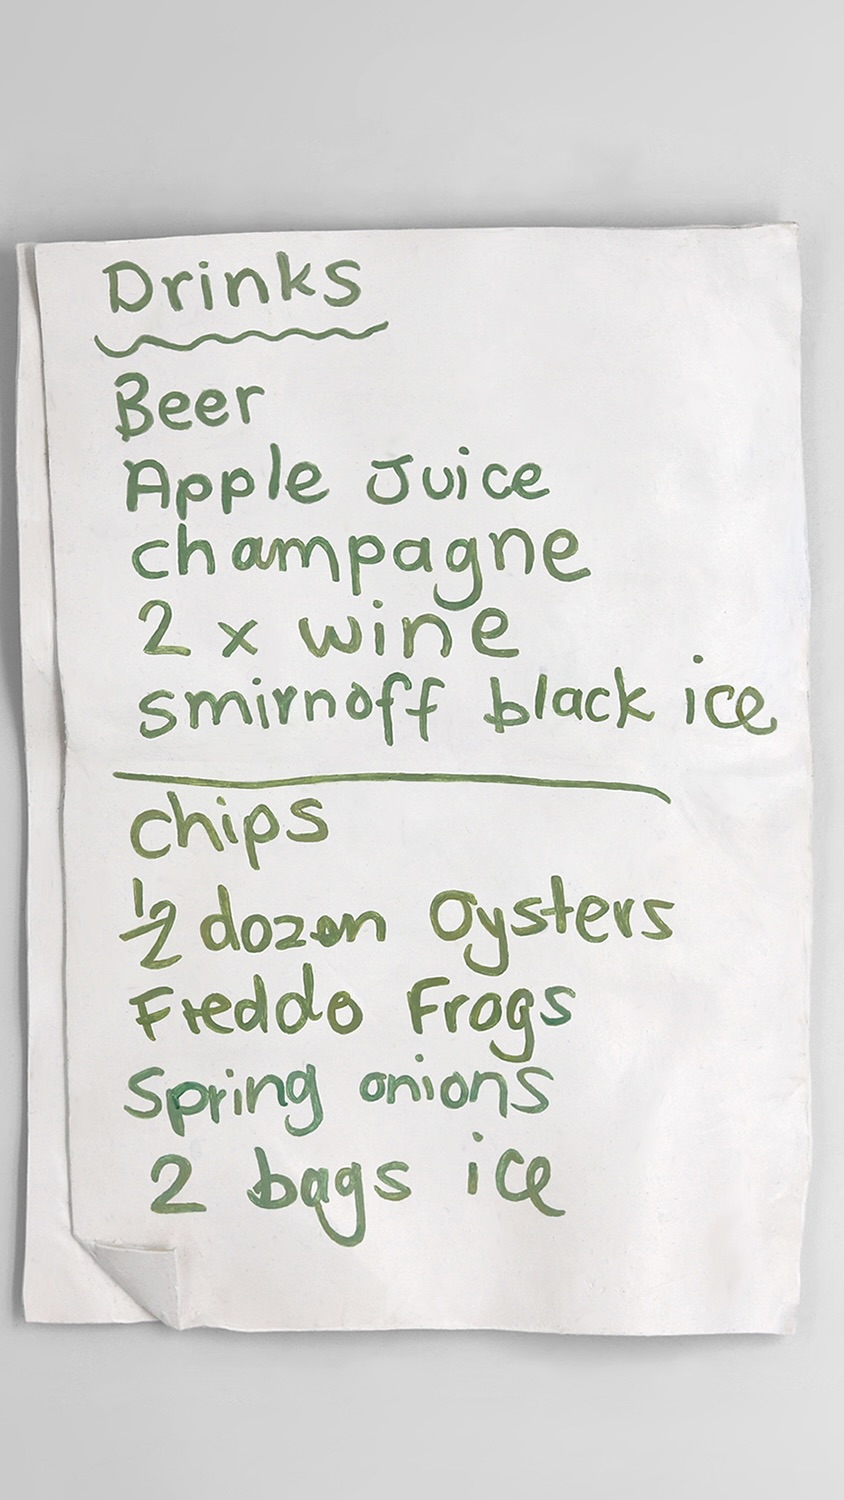 Drinks
Beer
Apple Juice
champagne
2 x wine
smirnoff black ice
chips
1/2 dozen Oysters
Freddo Frogs
Spring onions
2 bags ice